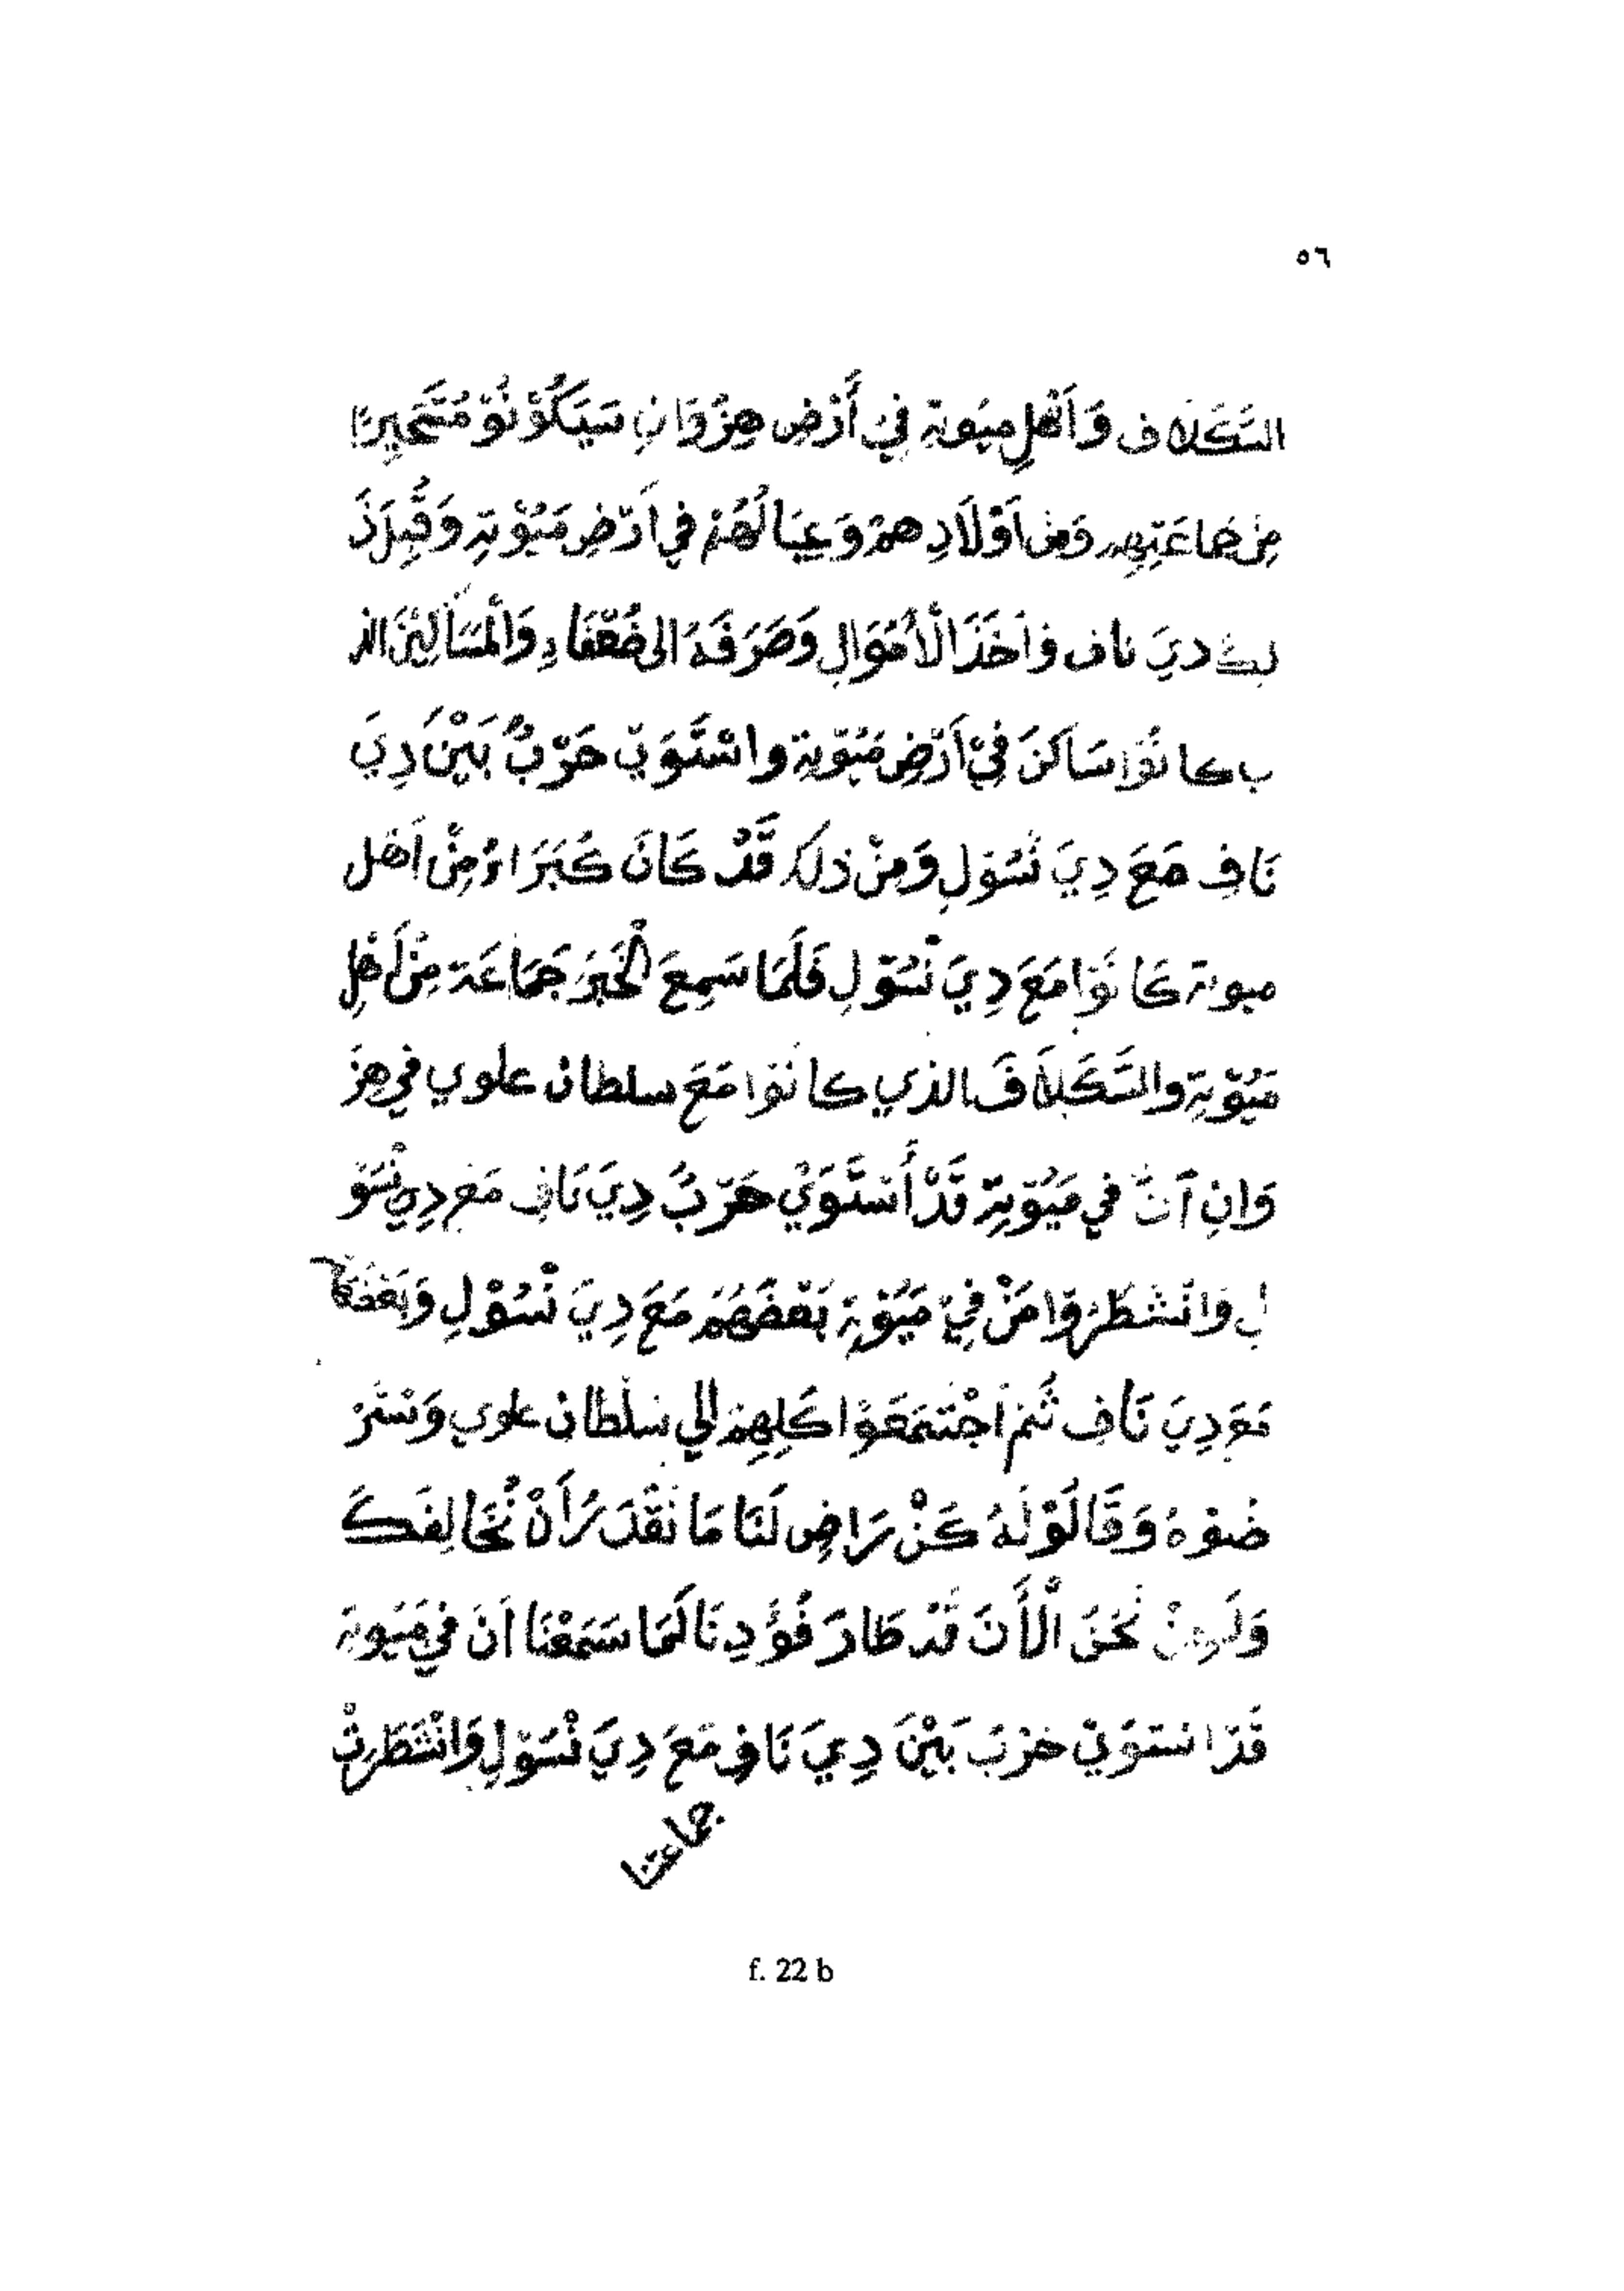 ٥٦
السَّكَلَاف وَاَهْلِ مَيُوتِة فِيْ أَرْضِ هِنْزُوَانِ سَيَكُوْنُوْ مُتَحَيِرًا
مِنْ جَمَاعَتِهِم وَمِن اَوْلَادِهِمْ وَعِيَالُهُمْ فِي اَرْضِ مَيُوْتِةِ وَقُبِلَ ذَ
لِكَ دِيَ نَاف وَاَخَذَ الْاُمْوَالِ وَصَرَفَهُ اِلى ضُعَفَاءِ وَالْمَسَاكِيْنَ الذ
ي كَانُوْا سَاكِنَ فِيْ اَرْضِ مَيُوْتِة وَاسْتَوَيْ حَرْبٌ بَيْنَ دِيَ
نَافِ مَعَ دِيَ نْسُوْلِ وَمِنْ ذلِكَ قَدْ كَانَ كُبَرَاءُ مِنْ اَهْلِ
ميوتة كَانُوْا مَعَ دِيَ نْسُوْلِ فَلَمَا سَمِعَ الْخَبَرَ جَمَاعَة مِنْ اَهْلِ
مَيُوْتِةِ وَالسَّكَلَافَ الذي كَانُوْا مَعَ سلطان علوي في هِنْز
وَانِ اَنَّ فِي مَيُوْتِةِ قَدْ أَسْتَوَيْ حَرْبٌ دِيَ نَافِ مَعَ دِيَ نْسُوْ
لِ وَانْشَطَرُوا مَنْ فِيْ مَيُوْتِةَ بَعْضَهُمْ مَعَ دِيَ نْسُوْلِ وَبَعْضُهُمْ
مَعَ دِيَ نَافِ ثُمَّ اَجْتَمَعَوْا كَلِهِمْ اِلي سُلْطَان علوي وَسْتَرْ
ضُوْهُ وَقَالُوْ لَهُ كَنْ رَاضِ لَنَا مَا نَقْدَرُ أَنْ نُخَالِفَكَ
وَلَكِنْ نَحْنُ الْأَنَ قَدْ طَارَ فُؤَدِنَا لَمَا سَمِعْنَا اَنَ فِي مَيُوتِة
قَدْ اسْتَوَيْ حَرْبَ بَيْنَ دِيَ نَافِ مَعَ دِيَ نْسُوْلِ وَانْشَطَرِتْ
جماعتنا
f. 22 b